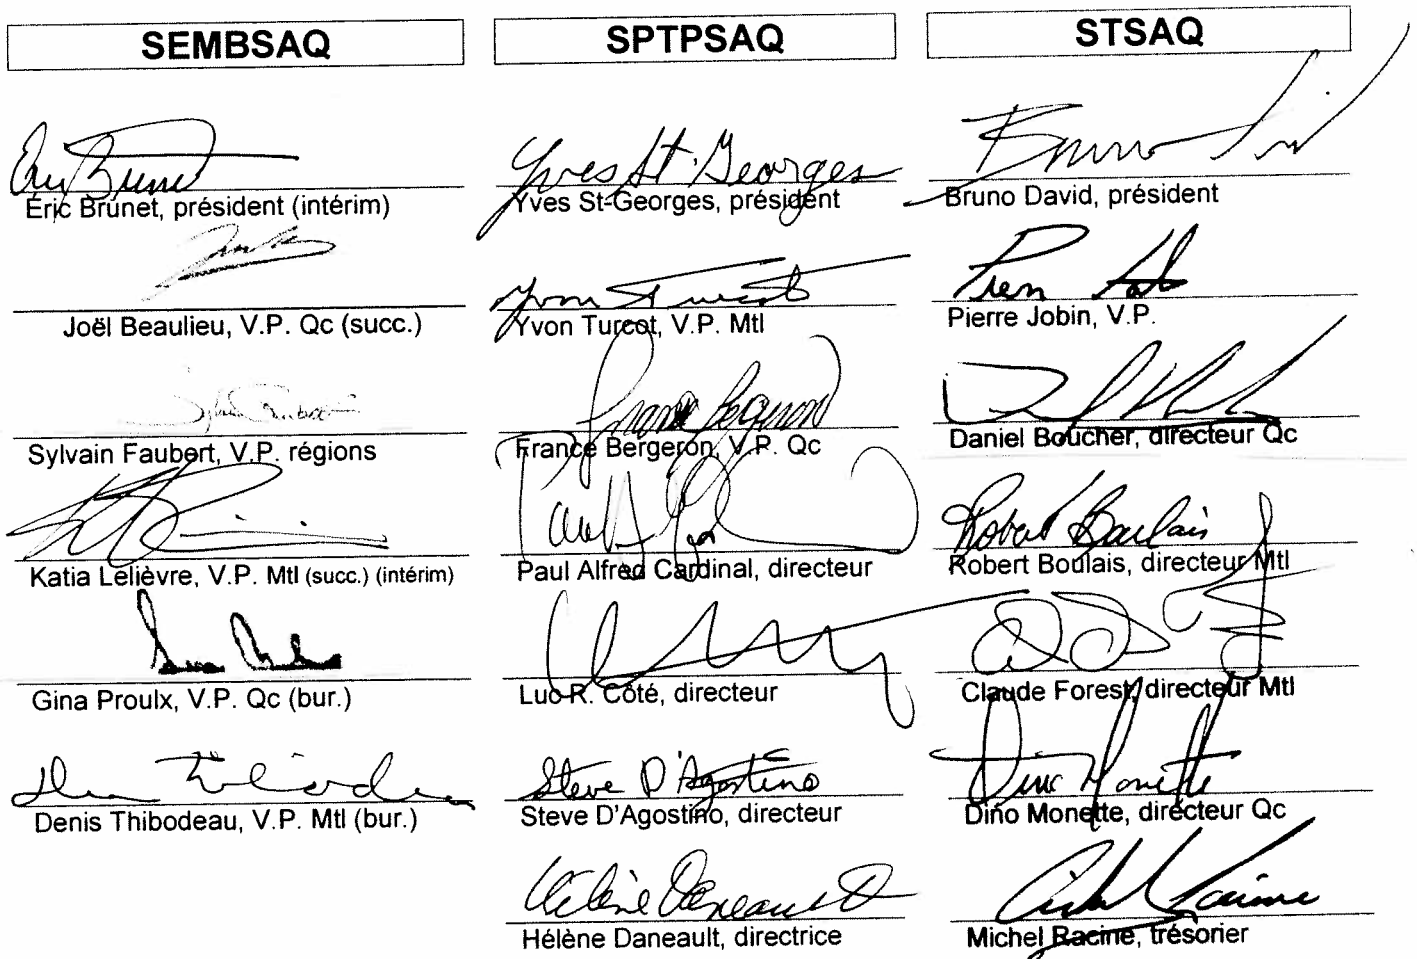 SEMBSAQ
Éric Brunet, président (intérim)
Joël Beaulieu, V.P. Qc (succ.)
Sylvain Faubert, V.P. régions
Katia Lelièvre, V.P. Mtl (succ.) (intérim)
Gina Proulx, V.P. Qc (bur.)
Denis Thibodeau, V.P. Mtl (bur.)
SPTPSAQ
Yves St Georges
Yves St-Georges, président
Yvon Turcot
Yvon Turcot, V.P. Mtl
France Bergeron
France Bergeron, V.P. Qc
Paul Alfred Cardinal, directeur
Luc R. Côté, directeur
Steve D'Agostino
Steve D'Agostino, directeur
Hélène Daneault
Hélène Daneault, directrice
STSAQ
Bruno David, président
Pierre Jobin, V.P.
Daniel Boucher, directeur Qc
Robert Boulais
Robert Boulais, directeur Mtl
Claude Forest, directeur Mtl
Dino Monette
Dino Monette, directeur Qc
Michel Racine, trésorier